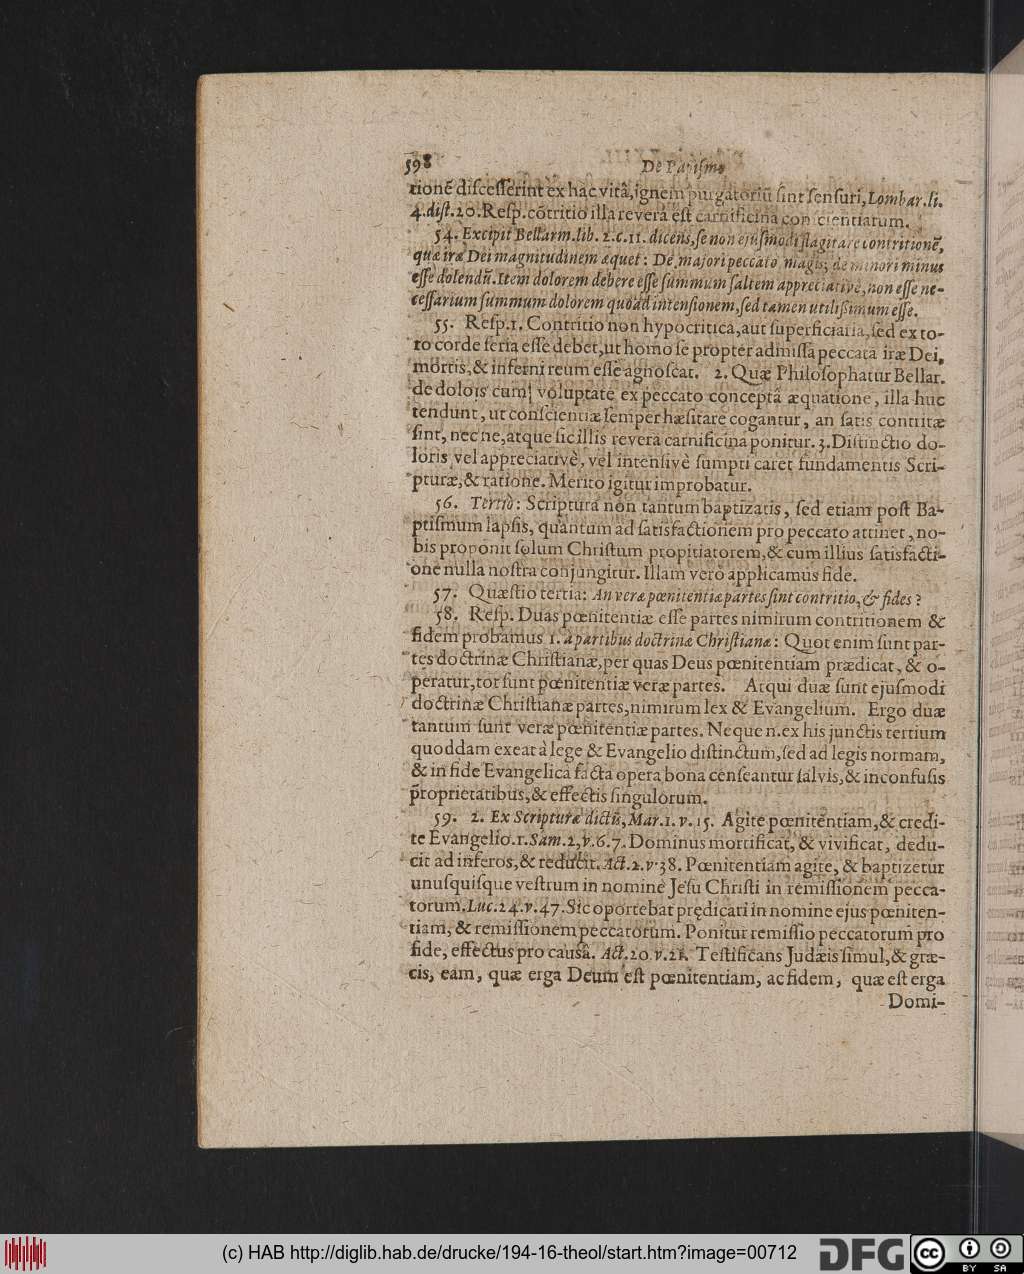 598 De Papismo
tionē discesserint ex hac vitâ, ignem purgatoriū sint sensuri, Lombar. li.
4. dist. 20. Resp. cōtritio illa reverà est carnificina conscientiarum.
54. Excipit Bellarm. lib. 2. c. 11. dicens, se non ejusmodi flagitare contritionē,
quæ iræ Dei magnitudinem æquet: De majori peccato magis, de minori minus
esse dolendū. Item dolorem debere esse summum saltem appreciativè, non esse ne-
cessarium summum dolorem quoad intensionem, sed tamen utilissimum esse.
55. Resp. 1. Contritio non hypocritica, aut superficiaria, sed ex to-
to corde seria esse debet, ut homo se propter admissa peccata iræ Dei,
mortis, & inferni reum esse agnoscat. 2. Quæ Philosophatur Bellar.
de doloris cum voluptate ex peccato conceptâ æquatione, illa huc
tendunt, ut conscientiæ semper hæsitare cogantur, an satis contritæ
sint, nec ne, atque sic illis reverà carnificina ponitur. 3. Distinctio do-
loris vel appreciativè, vel intensivè sumpti caret fundamentis Scri-
pturæ, & ratione. Meritò igitur improbatur.
56. Tertiò: Scriptura non tantum baptizatis, sed etiam post Ba-
ptismum lapsis, quantum ad satisfactionem pro peccato attinet, no-
bis proponit solum Christum propitiatorem, & cum illius satisfacti-
one nulla nostra conjungitur. Illam verò applicamus fide.
57. Quæstio tertia: An veræ pœnitentiæ partes sint contritio, & fides?
58. Resp. Duas pœnitentiæ esse partes nimirum contritionem &
fidem probamus 1. à partibus doctrinæ Christianæ: Quot enim sunt par-
tes doctrinæ Christianæ, per quas Deus pœnitentiam prædicat, & o-
peratur, tot sunt pœnitentiæ veræ partes. Atqui duæ sunt ejusmodi
doctrinæ Christianæ partes, nimirum lex & Evangelium. Ergo duæ
tantum sunt veræ pœnitentiæ partes. Neque n. ex his junctis tertium
quoddam exeat à lege & Evangelio distinctum, sed ad legis normam,
& in fide Evangelica facta opera bona censeantur salvis, & inconfusis
proprietatibus, & effectis singulorum.
59. 2. Ex Scripturæ dictis, Mar. 1. v. 15. Agite pœnitentiam, & credi-
te Evangelio. 1. Sam. 2, v. 6. 7. Dominus mortificat, & vivificat, dedu-
cit ad inferos, & reducit. Act. 2. v. 38. Pœnitentiam agite, & baptizetur
unusquisque vestrum in nomine Jesu Christi in remissionem pecca-
torum. Luc. 24. v. 47. Sic oportebat prędicari in nomine ejus pœniten-
tiam, & remissionem peccatorum. Ponitur remissio peccatorum pro
fide, effectus pro causâ. Act. 20. v. 21. Testificans Judæis simul, & græ-
cis, eam, quæ erga Deum est pœnitentiam, ac fidem, quæ est erga
Domi-
(c) HAB http://diglib.hab.de/drucke/194-16-theol/start.htm?image=00712
DFG cc BY SA